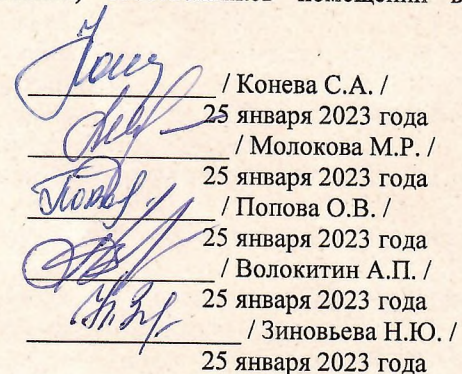 помещений в
/ Конева С.А. /
25 января 2023 года
/ Молокова М.Р. /
25 января 2023 года
/ Попова О.В. /
25 января 2023 года
/ Волокитин А.П. /
25 января 2023 года
/ Зиновьева Н.Ю. /
25 января 2023 года